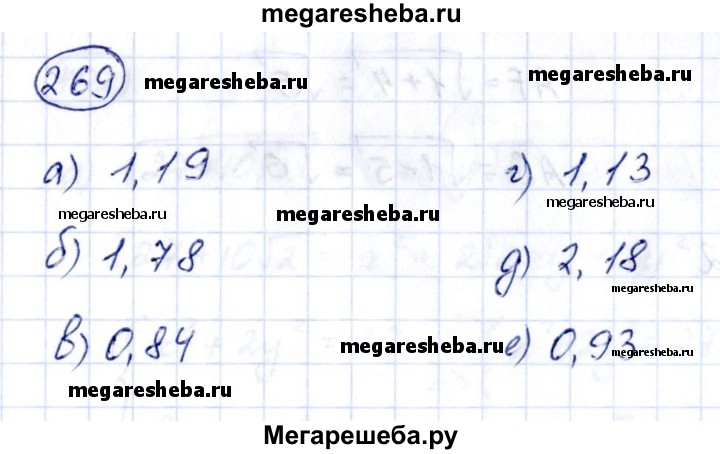 megaresheba.ru
269 megaresheba.ru megaresheba.ru
а) 1,19 г) 1,13
megaresheba.ru megaresheba.ru megaresheba.ru
б) 1,78 д) 2,18
megaresheba.ru
в) 0,84 megaresheba.ru е) 0,93 megaresheba.ru
megaresheba.ru
Мегарешеба.ру